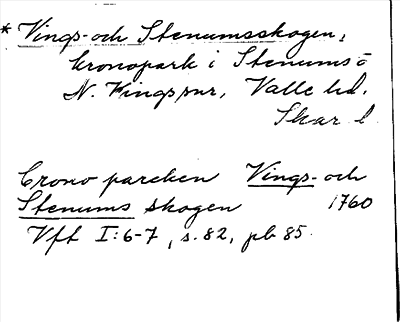 * Vings- och Stenumsskogen,
kronopark i Stenums o
N. Vings snr, Valle hd,
Skar. l.
Crono parcken Vings- och
Stenums skogen 1760
Vft I:6-7, s. 82, pb 85.